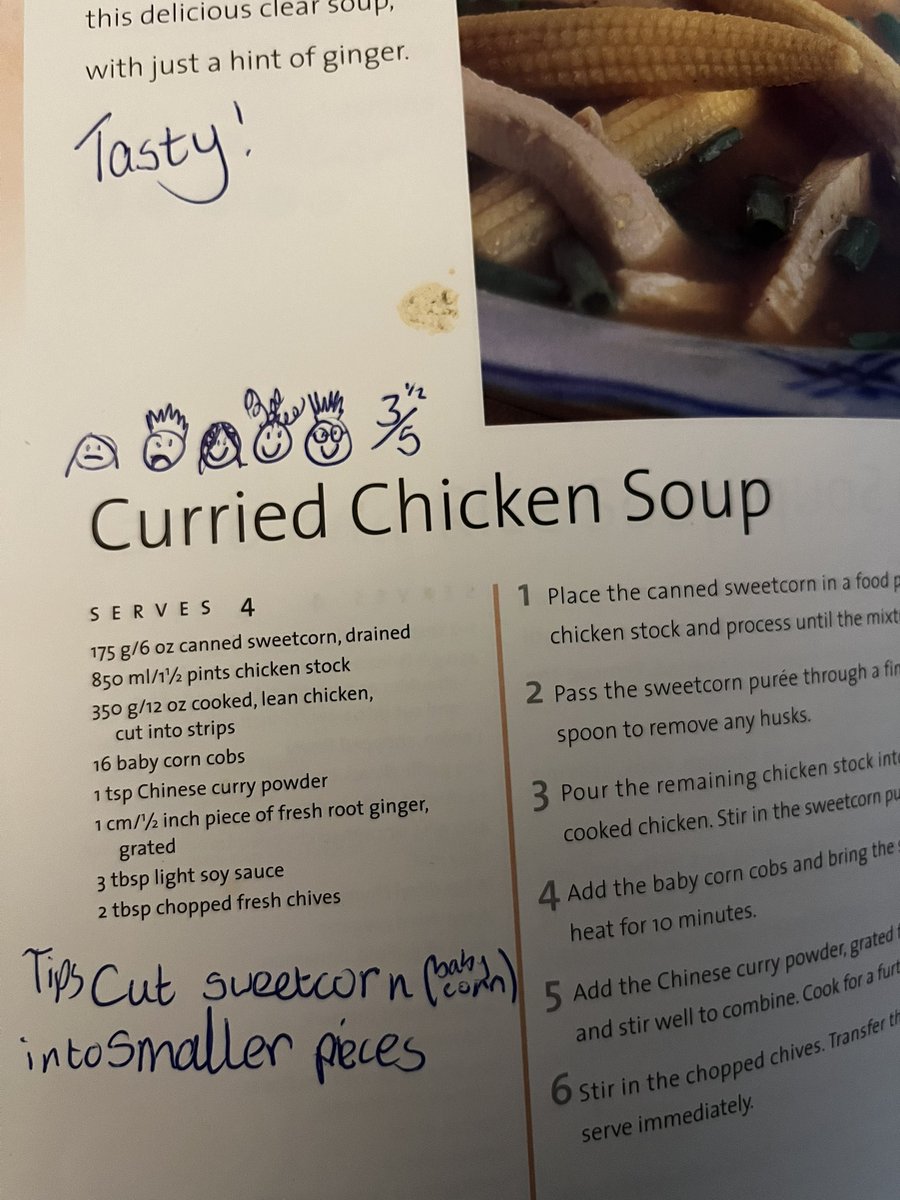 this delicious clear soup,
with just a hint of ginger.
Tasty!
3 1/2/5
Curried Chicken Soup
SERVES 4
175 g/6 oz canned sweetcorn, drained
850 ml/1½ pints chicken stock
350 g/12 oz cooked, lean chicken,
cut into strips
16 baby corn cobs
1 tsp Chinese curry powder
1 cm/½ inch piece of fresh root ginger,
grated
3 tbsp light soy sauce
2 tbsp chopped fresh chives
Tips Cut sweetcorn (baby corn)
into smaller pieces
1 Place the canned sweetcorn in a food
chicken stock and process until the
2 Pass the sweetcorn purée through a
spoon to remove any husks.
3 Pour the remaining chicken stock
cooked chicken. Stir in the sweetcorn
4 Add the baby corn cobs and bring the
heat for 10 minutes.
5 Add the Chinese curry powder, grated
and stir well to combine. Cook for a
6 Stir in the chopped chives. Transfer
serve immediately.